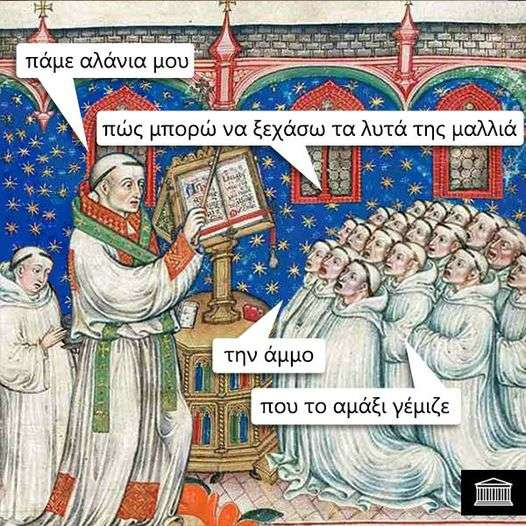 πάμε αλάνια μου
πώς μπορώ να ξεχάσω τα λυτά της μαλλιά
την άμμο
που το αμάξι γέμιζε